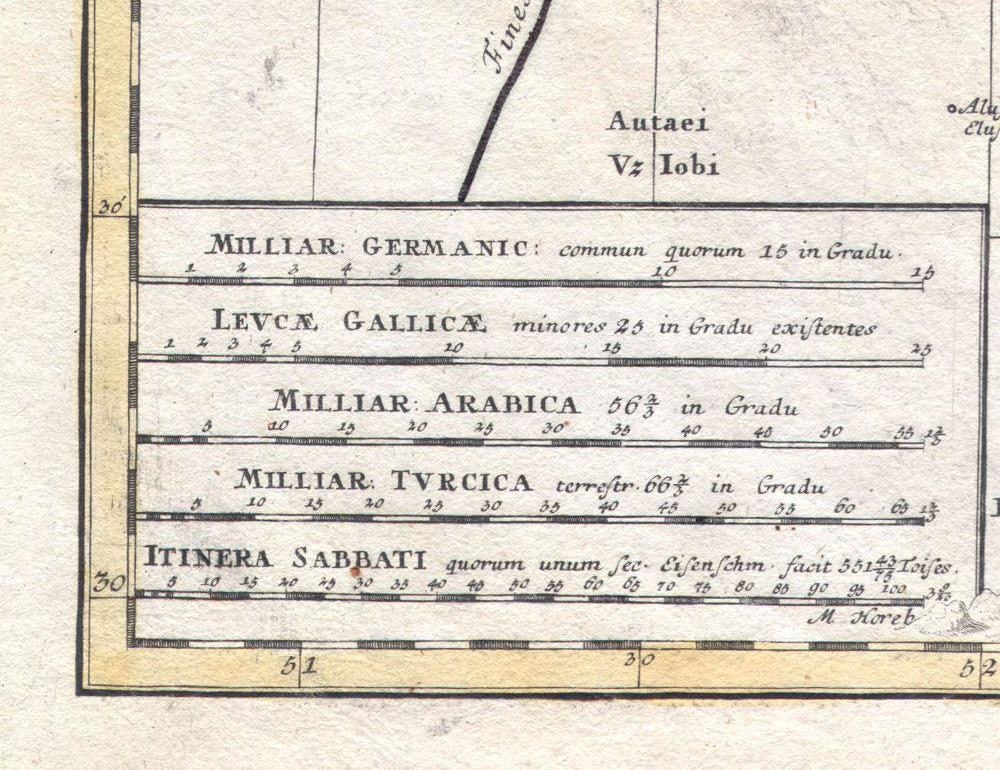 Fines
Autaei
Vz Iobi
30'
MILLIAR: GERMANIC: commun quorum 15 in Gradu.
1 2 3 4 5 10 15
LEVCÆ GALLICÆ minores 25 in Gradu exiſtentes
1 2 3 4 5 10 15 20 25
MILLIAR: ARABICA 56 2/3 in Gradu
5 10 15 20 25 30 35 40 45 50 55
MILLIAR: TVRCICA terreſtr. 66 2/3 in Gradu
5 10 15 20 25 30 35 40 45 50 55 60 65
ITINERA SABBATI quorum unum ſec. Eiſenſchm. facit 551 43/75 Toiſes.
30
5 10 15 20 25 30 35 40 45 50 55 60 65 70 75 80 85 90 95 100
M Horeb
51 30 52